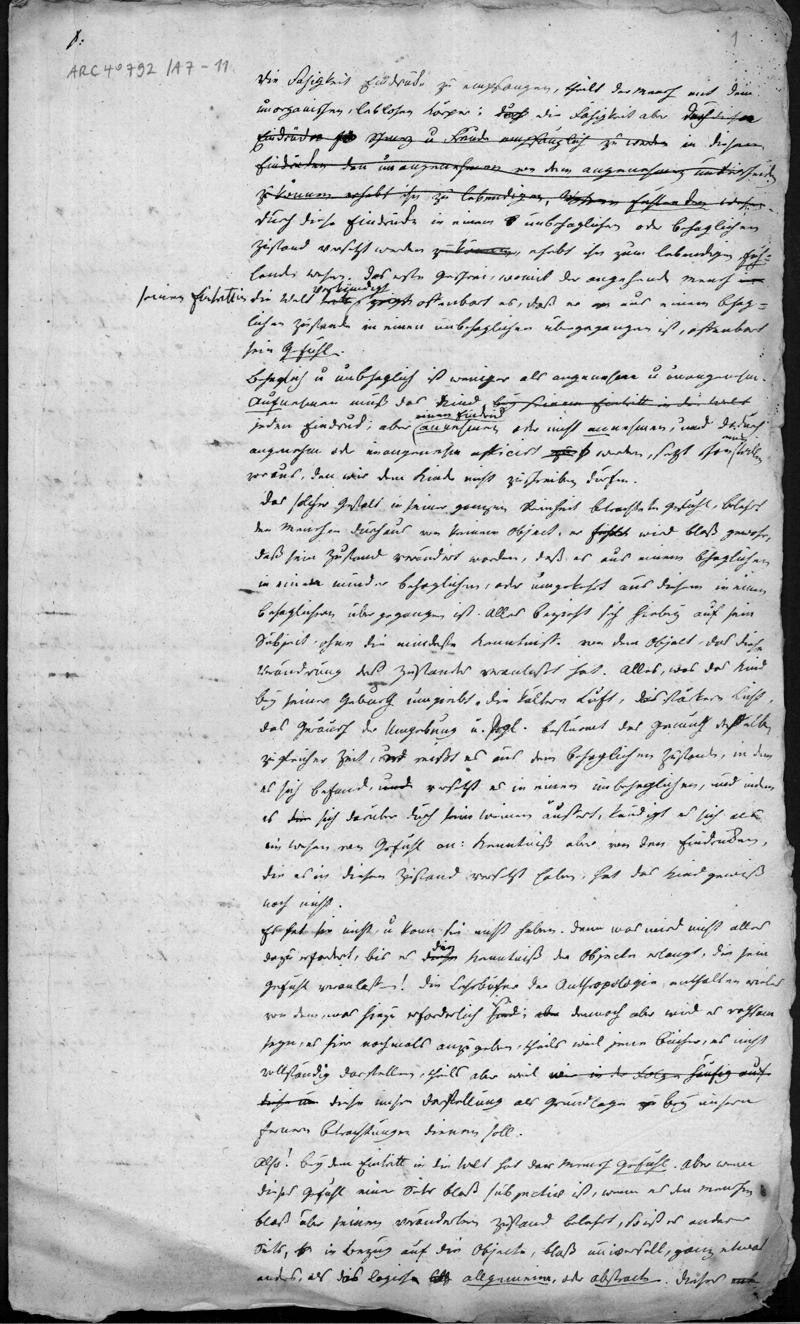 1
ARC 4° 792 / A7 - 11
Die Fähigkeit Eindrücke zu empfangen, theilt der Mensch mit dem
unorganischen, leblosen Körper; die Fähigkeit aber
Eindrücke Schmerz u Freude empfänglich zu werden in diesen
Eindrücken den unangenehmen von dem angenehmen unterscheiden
zu können erhebt ihn zu lebendigen, fühlenden Wesen.
durch diese Eindrücke in einem unbehaglichen oder behaglichen
Zustand versetzt werden zu können, erhebt ihn zum lebendigen füh-
lenden Wesen. Das erste Geschrei, womit der angehende Mensch
seinen Eintritt in die Welt verkündigt offenbart es, daß er aus einem behag-
lichen Zustande in einen unbehaglichen übergegangen ist, offenbart
sein Gefühl.
Behaglich u unbehaglich ist weniger als angenehm u unangenehm.
Aufnehmen muß das Kind bey seinem Eintritt in die Welt
jeden Eindruck; aber einen Eindruck annehmen oder nicht annehmen, und dadurch
angenehm oder unangenehm afficirt zu werden, setzt schon einen Willen
voraus, den wir dem Kinde nicht zuschreiben dürfen.
Das solcher Gestalt in seiner ganzen Reinheit betrachtete Gefühl, belehrt
den Menschen durchaus von keinem Object, er fühlt wird bloß gewahr,
daß sein Zustand verändert worden, daß es aus einem behaglichen
in einen minder behaglichen, oder umgekehrt aus diesem in einen
behaglichern übergegangen ist. Alles bezieht sich hierbey auf sein
Subject, ohne die mindeste Kenntniß von dem Objekt, das diese
Verändrung des Zustandes veranlaßt hat. Alles, was das Kind
bey seiner Geburt umgiebt, die kältere Luft, das stärkere Licht,
das Geräusch der Umgebung u. dgl. bestürmt das Gemüth desselben
zu gleicher Zeit, und reißt es aus dem behaglichen Zustande, in dem
es sich befand, und versetzt es in einen unbehaglichen, und indem
es sich darüber durch sein weinen äußert, kündigt es sich als
ein Wesen von Gefühl an: Kenntniß aber von den Eindrücken,
die es in diesen Zustand versetzt haben, hat das Kind gewiß
noch nicht.
Es hat sie nicht, u kann sie nicht haben. Denn was wird nicht alles
dazu erfordert, bis es die Kenntniß der Objecte erlangt, die sein
Gefühl veranlaßt! Die Lehrbücher der Anthropologie, enthalten vieles
von dem, was hiezu erforderlich sind; dennoch aber wird es rathsam
seyn, es hier nochmals anzugeben, theils weil jene Bücher, es nicht
vollständig darstellen, theils aber weil wir in der Folge häufig auf
diese unsre Darstellung als Grundlage zu bey unsern
fernern Betrachtungen dienen soll.
Also! bey dem Eintritt in die Welt hat der Mensch Gefühl. Aber wenn
dieses Gefühl einer Seits bloß subjectiv ist, wenn es den Menschen
bloß über seinen veränderten Zustand belehrt, so ist es anderer
Seits, in Bezug auf die Objecte, bloß universell, ganz etwas
anders, als das logisch allgemeine, oder abstracte. Dieses